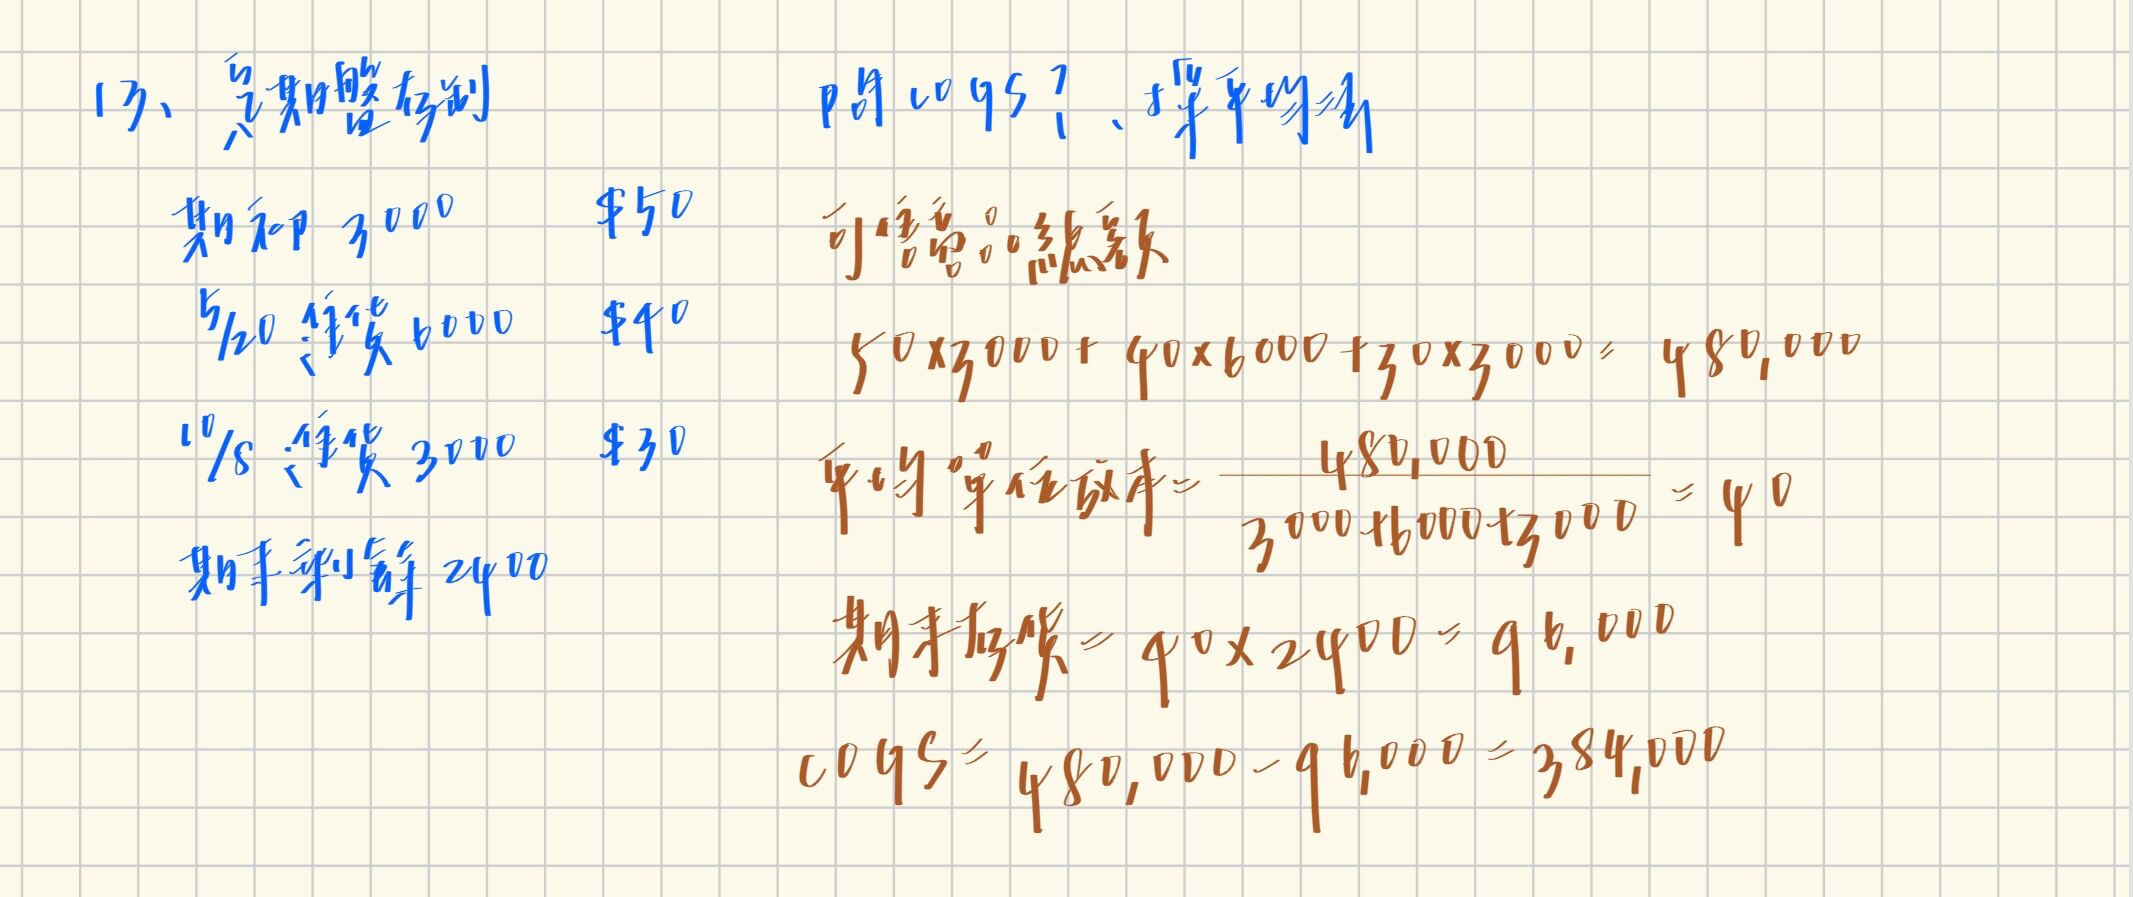 13、定期盤存制
期初 3000 $50
5/20 進貨 6000 $40
10/8 進貨 3000 $30
期末剩餘 2400
問 COGS?、採平均法
可售商品總額
50x3000 + 40x6000 + 30x3000 = 480,000
平均單位成本 = 480,000 / 3000+6000+3000 = 40
期末存貨 = 40 x 2400 = 96,000
COGS = 480,000 - 96,000 = 384,000